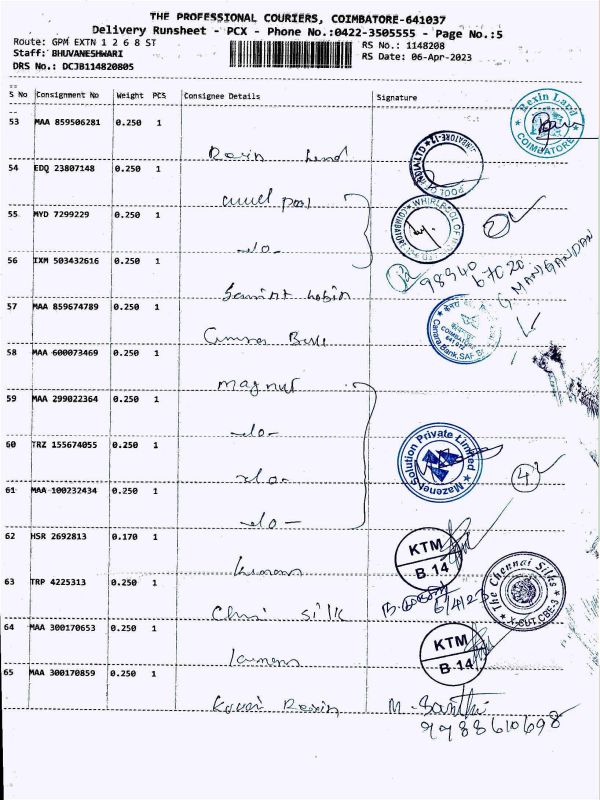 THE PROFESSIONAL COURIERS, COIMBATORE-641037
Delivery Runsheet - PCX - Phone No.:0422-3505555 - Page No.:5
Route: GPM EXTN 1 2 6 8 ST
RS No.: 1148208
Staff: BHUVANESHWARI
RS Date: 06-Apr-2023
DRS No.: DCJB114820805
S No Consignment No Weight PCS Consignee Details Signature
53 MAA 859506281 0.250 1
Rexin Land
COIMBATORE
54 EDQ 23807148 0.250 1
55 MYD 7299229 0.250 1
-do-
56 IXM 503432616 0.250 1
98940
67020
G MANIGANDAN
57 MAA 859674789 0.250 1
Canara Bank
COIMBATORE
58 MAA 600073469 0.250 1
59 MAA 299022364 0.250 1
-do-
60 TRZ 155674055 0.250 1
-do-
Mazenet Solution Private Limited
4
61 MAA 100232434 0.250 1
-do-
62 HSR 2692813 0.170 1
KTM
B.14
6/4/23
63 TRP 4225313 0.250 1
The Chennai Silks
X-CUT, CBE-3
64 MAA 300170653 0.250 1
KTM
B.14
65 MAA 300170859 0.250 1
Rexin
M. Santhi
9988610698